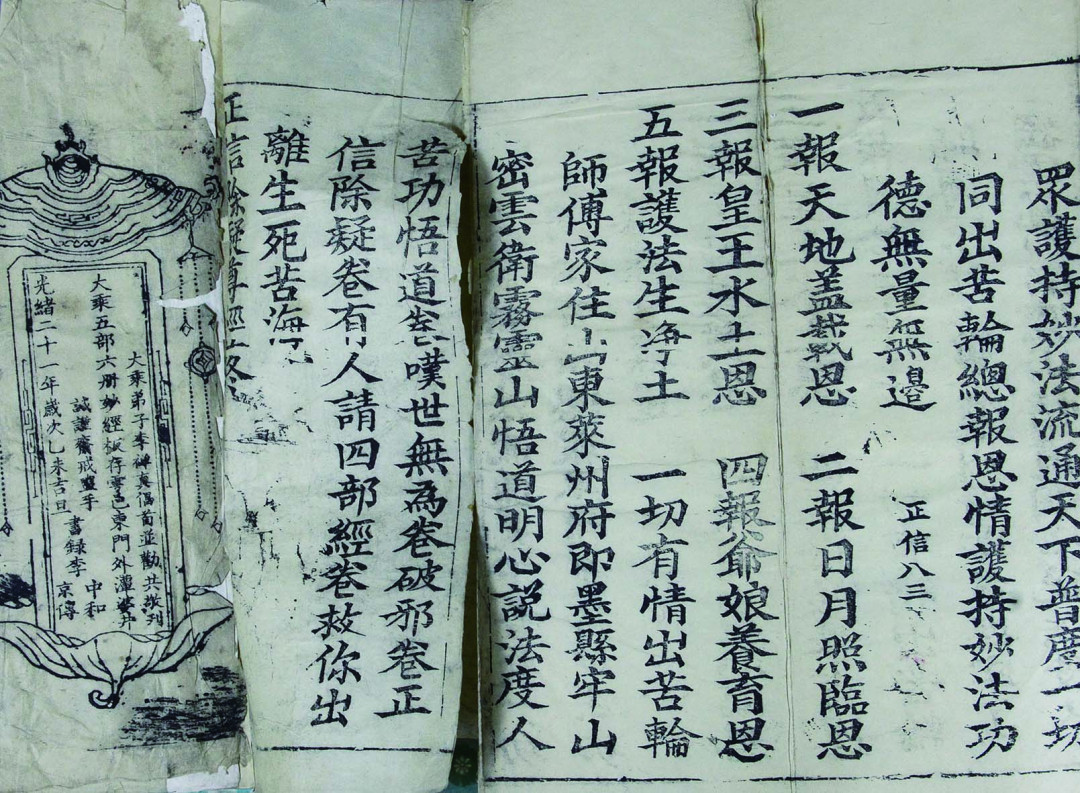 眾護持妙法流通天下普度一切
同出苦輪總報恩情護持妙法功
德無量無邊
正信八三
一報天地蓋載恩 二報日月照臨恩
三報皇王水土恩 四報爺娘養育恩
五報護法生淨土 一切有情出苦輪
師傅家住山東萊州府即墨縣牢山
密雲衛霧靈山悟道明心說法度人
苦功悟道卷嘆世無為卷破邪卷正
信除疑卷有人請四部經卷救你出
離生死苦海
正信除疑尊經終
大乘弟子李
大乘五部六册妙經板存雲邑東門外潭
誠謹齋戒盥手書錄李中和京傳
光緒二十一年歲次乙未吉旦